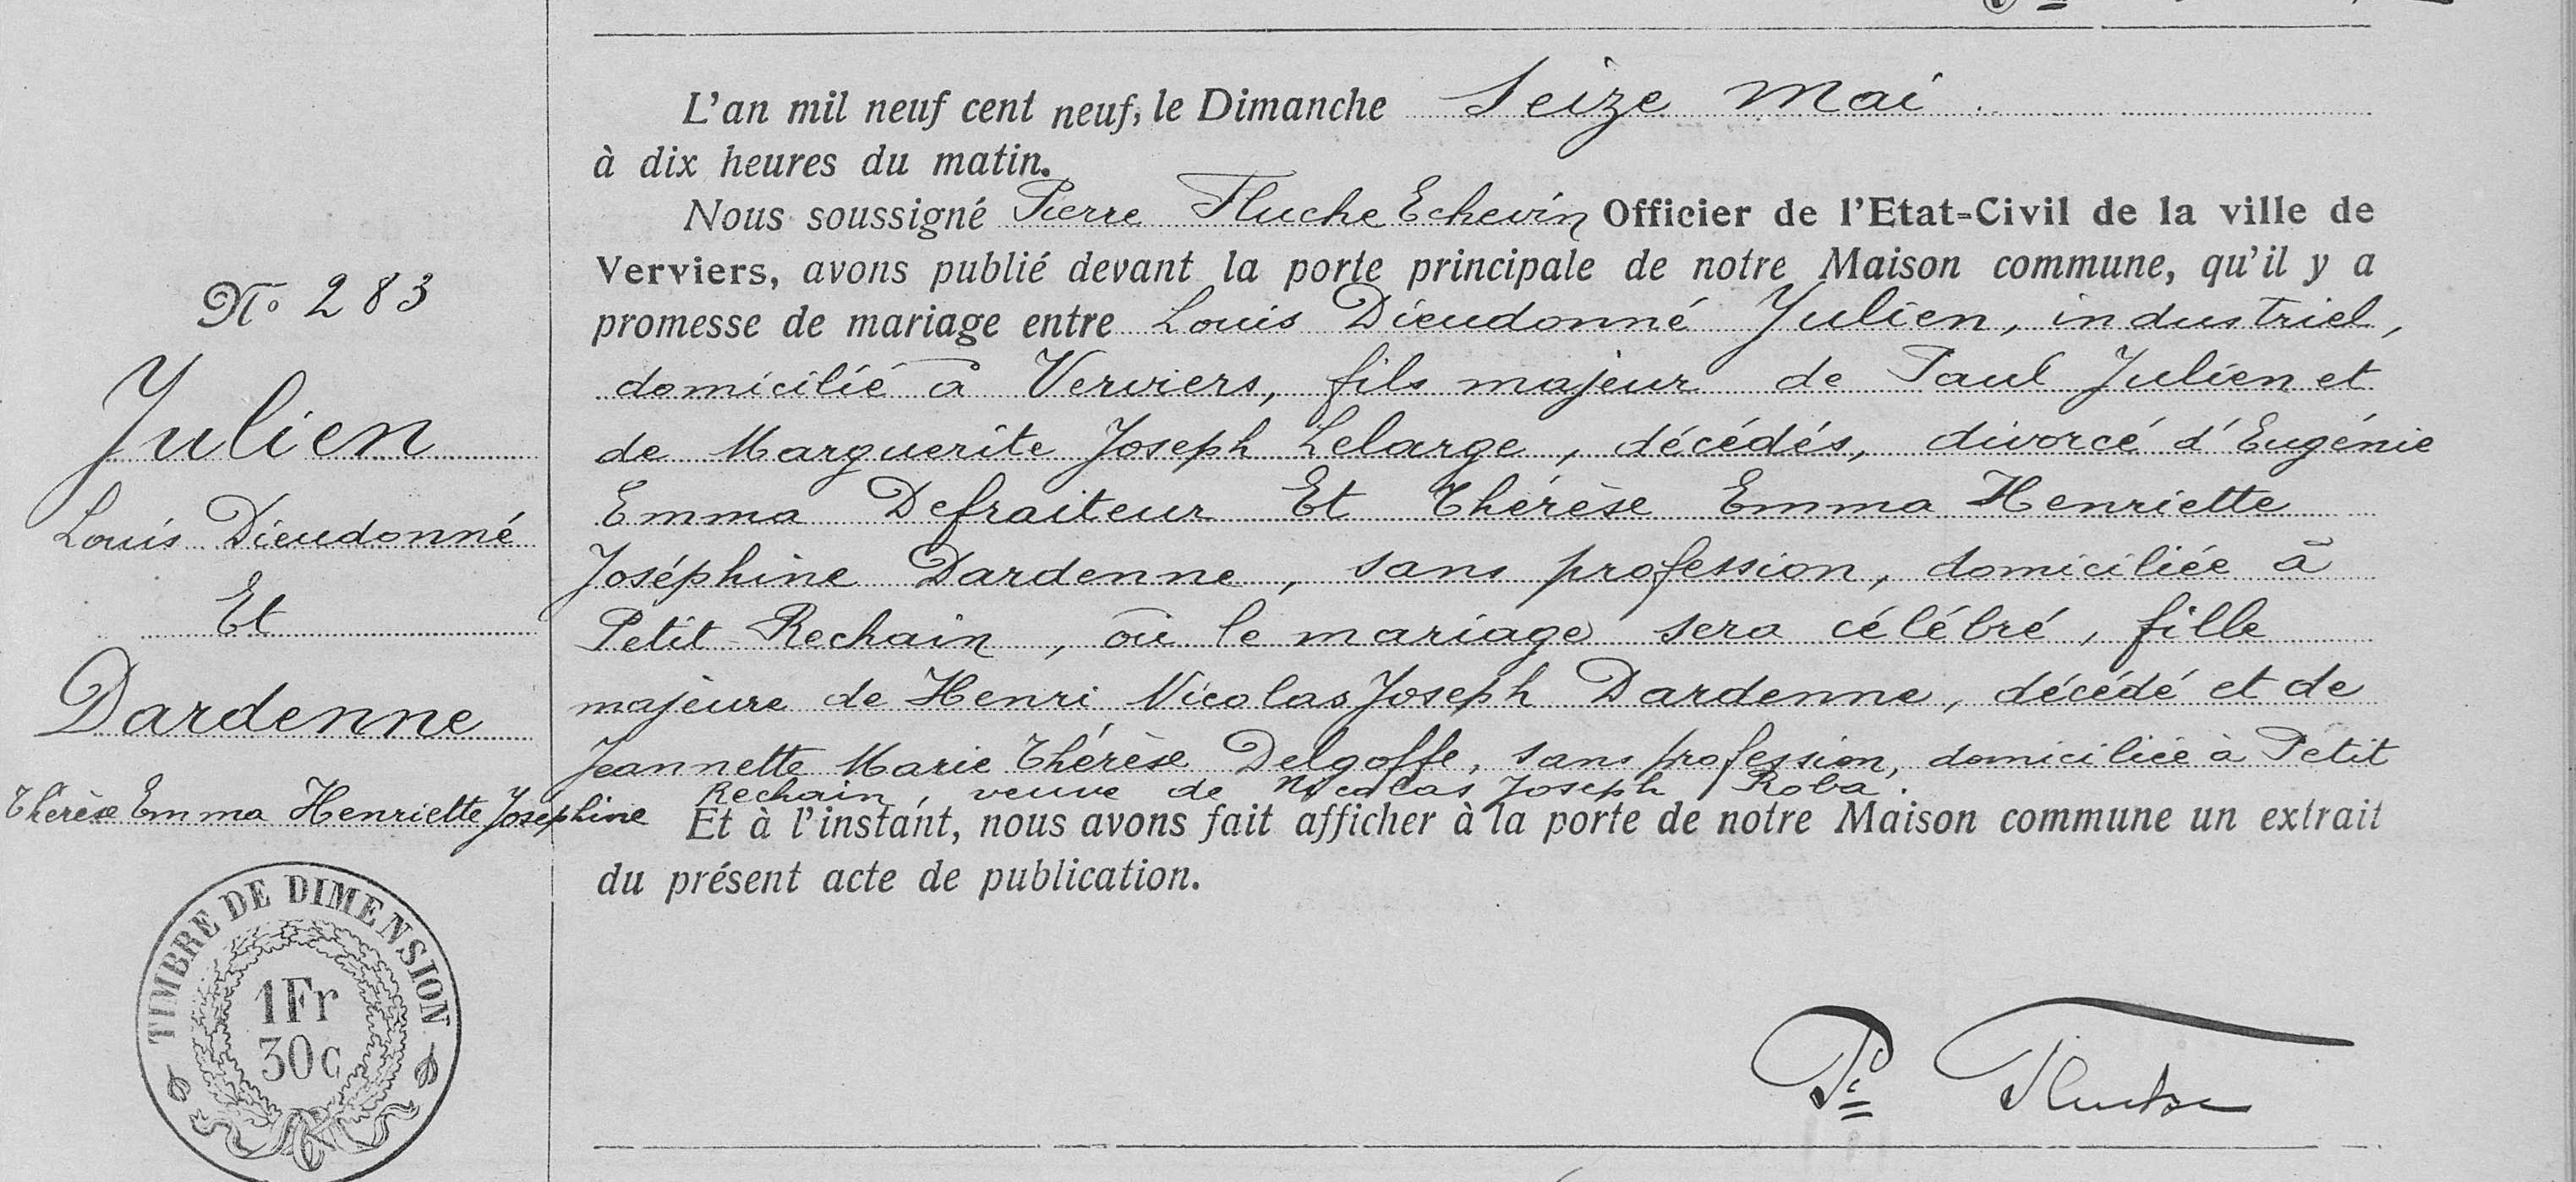 N° 283
Julien
Louis Dieudonné
Et
Dardenne
Thérèse Emma Henriette Joséphine
TIMBRE DE DIMENSION
1Fr
30c
L'an mil neuf cent neuf, le Dimanche Seize Mai
à dix heures du matin.
Nous soussigné Pierre Fluche Echevin Officier de l'Etat-Civil de la ville de
Verviers, avons publié devant la porte principale de notre Maison commune, qu'il y a
promesse de mariage entre Louis Dieudonné Julien, industriel,
domicilié à Verviers, fils majeur de Paul Julien et
de Marguerite Joseph Lelarge, décédés, divorcé d'Eugénie
Emma Defraiteur Et Thérèse Emma Henriette
Joséphine Dardenne, sans profession, domiciliée à
Petit-Rechain, où le mariage sera célébré, fille
majeure de Henri Nicolas Joseph Dardenne, décédé et de
Jeannette Marie Thérèse Delgoffe, sans profession, domiciliée à Petit
Rechain, veuve de Nicolas Joseph Roba.
Et à l'instant, nous avons fait afficher à la porte de notre Maison commune un extrait
du présent acte de publication.
Pre Fluche